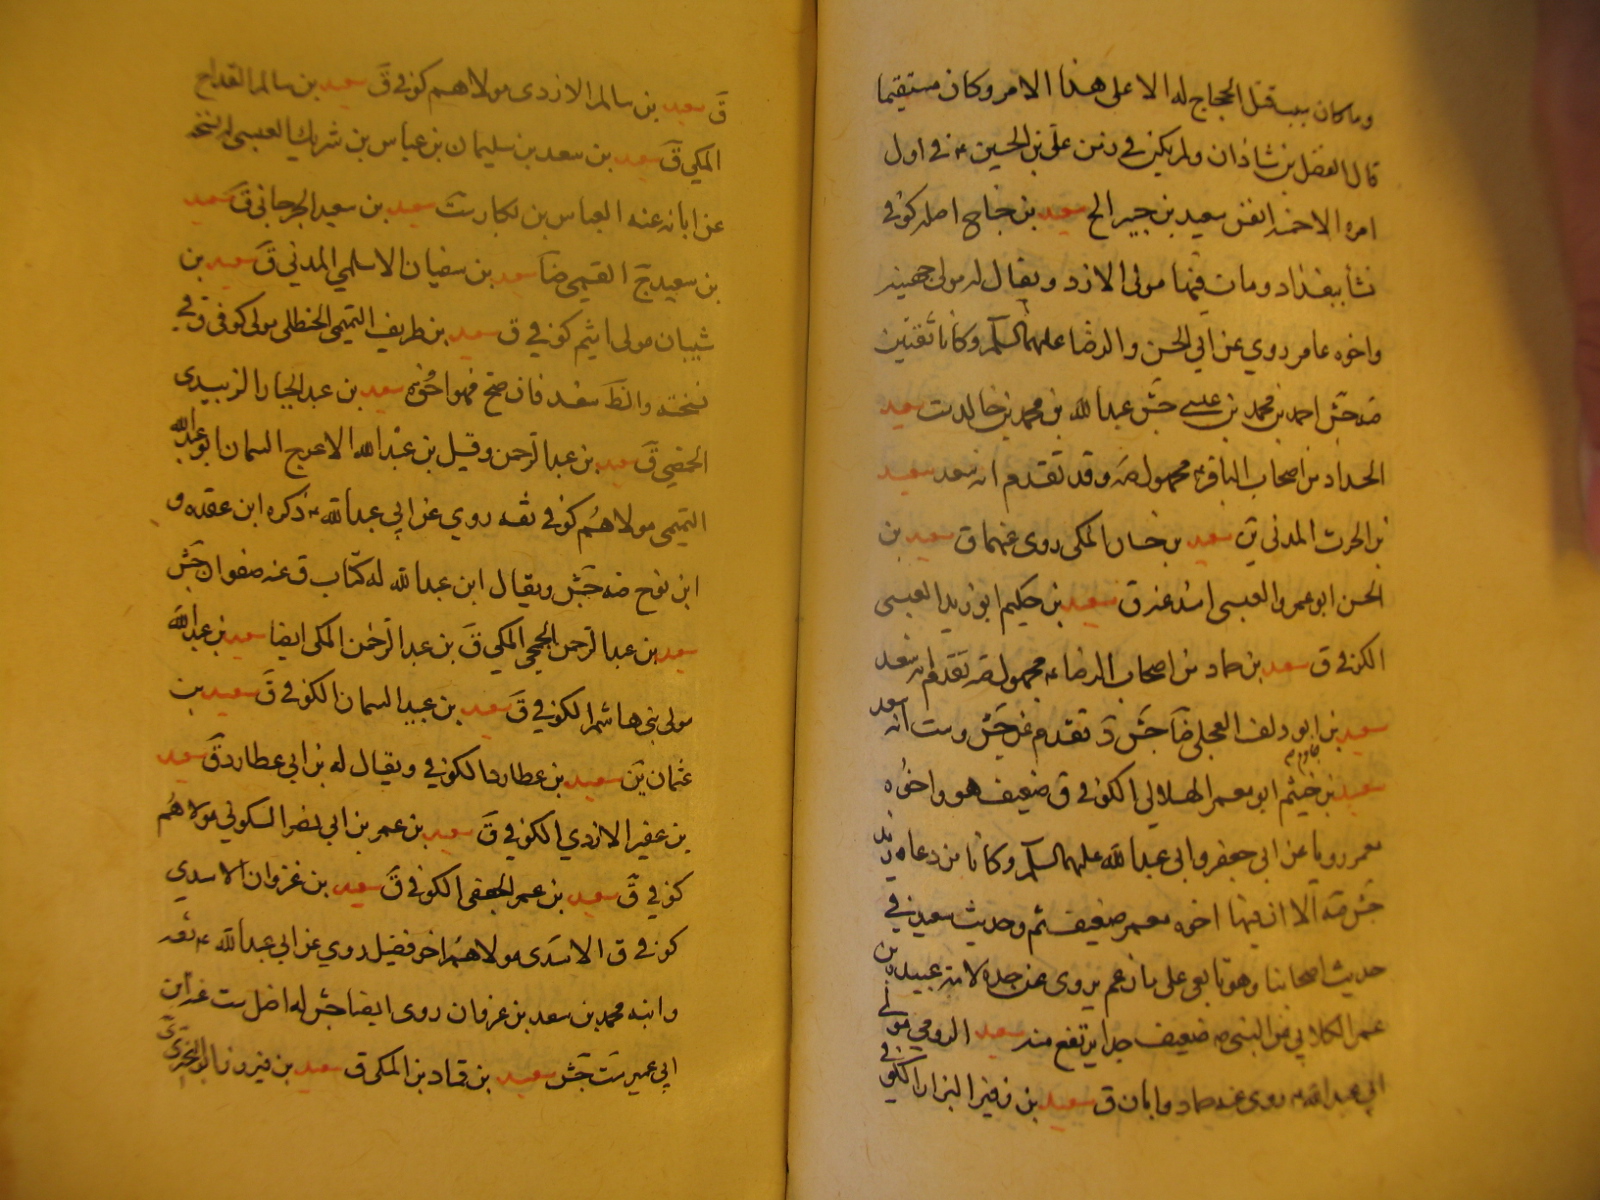 وما كان سبب قتل الحجاج له الا على هذا الامر وكان مستقيما
قال الفضل بن شاذان ولم يكن في زمن علي بن الحسين ع في اول
امره الا خمسة انفس سعيد بن جبير الخ سعيد بن جناح اصله كوفي
نشأ ببغداد ومات فيها مولى الازد ويقال له مولى جهينة
واخوه عامر روى عن ابي الحسن والرضا عليهما السلام وكانا ثقتين
صه جش احمد بن محمد بن عيسى جش عبد الله بن محمد بن خالد ست سعيد
الحداد من اصحاب الباقر ع مجهول صه وقد تقدم انه سعد سعيد
بن الحرث المدني ين سعيد بن حسان المكي روى عنهما ق سعيد بن
الحسن ابو عمرو العبسي اسند عنه ق سعيد بن حكيم ابو زيد العبسي
الكوفي ق سعيد بن حماد من اصحاب الرضا ع مجهول صه تقدم انه سعد
سعيد بن ابو دلف العجلي ضا جش د تقدم عن جش وست انه سعد
سعيد بن خثيم ابو معمر الهلالي الكوفي ق ضعيف هو واخوه
معمر رويا عن ابي جعفر وابي عبد الله عليهما السلام وكانا من دعاة زيد
جش صه الا ان فيها اخوه معمر ضعيف ثم وحديث سعيد في
حديث اصحابنا وهو تابعي على ما زعم يروى عن جده لامه عبيدة بن
عمر الكلابي عن النبي ص ضعيف جدا يرتفع منه سعيد الرومي مولى
ابي عبد الله ع روى عنه حماد وابان ق سعيد بن زفير البزار الكوفي
ق سعيد بن سالم الازدي مولاهم كوفي ق سعيد بن سالم القداح
المكي ق سعيد بن سعد بن سليمان بن عباس بن شريك العبسي له نسخة
عن ابانه عنه العباس بن بكار ست سعيد بن سعيد الجرجاني ق سعيد
بن سعيد القيمى ضا سعيد بن سفيان الاسلمي المدني ق سعيد بن
شيبان مولى كوفي ق سعيد بن طريف التميمي الحنظلي مولى كوفي ق في
نسخة والظ سعد فان صح فهو اخوه سعيد بن عبد الجبار الزبيدي
الحمصي ق سعيد بن عبد الرحمن وقيل بن عبد الله الاعرج السمان ابو عبد الله
التميمي مولاهم كوفي ثقة روى عن ابي عبد الله ع ذكره ابن عقدة و
ابن نوح صه جش ويقال ابن عبد الله له كتاب ق عنه صفوان جش
سعيد بن عبد الرحمن الجمحي المكي ق بن عبد الرحمن المكي ايضا سعيد بن عبد الله
مولى بني هاشم الكوفي ق سعيد بن عبيد السمان الكوفي ق سعيد بن
عثمان ين سعيد بن عطارد الكوفي ويقال له بن ابي عطارد ق سعيد
بن عفير الازدي الكوفي ق سعيد بن عمر بن ابي نصر السكوني مولاهم
كوفي ق سعيد بن عمر الجعفي الكوفي ق سعيد بن غزوان الاسدي
كوفي ق الاسدى مولاهم اخو فضيل روى عن ابي عبد الله ع ثقه
وابنه محمد بن سعد بن غزوان روى ايضا جش له اصل ست عنه ابن
ابي عمير ست جش سعيد بن قماد بن المكي ق سعيد بن فيروز ابو البختري